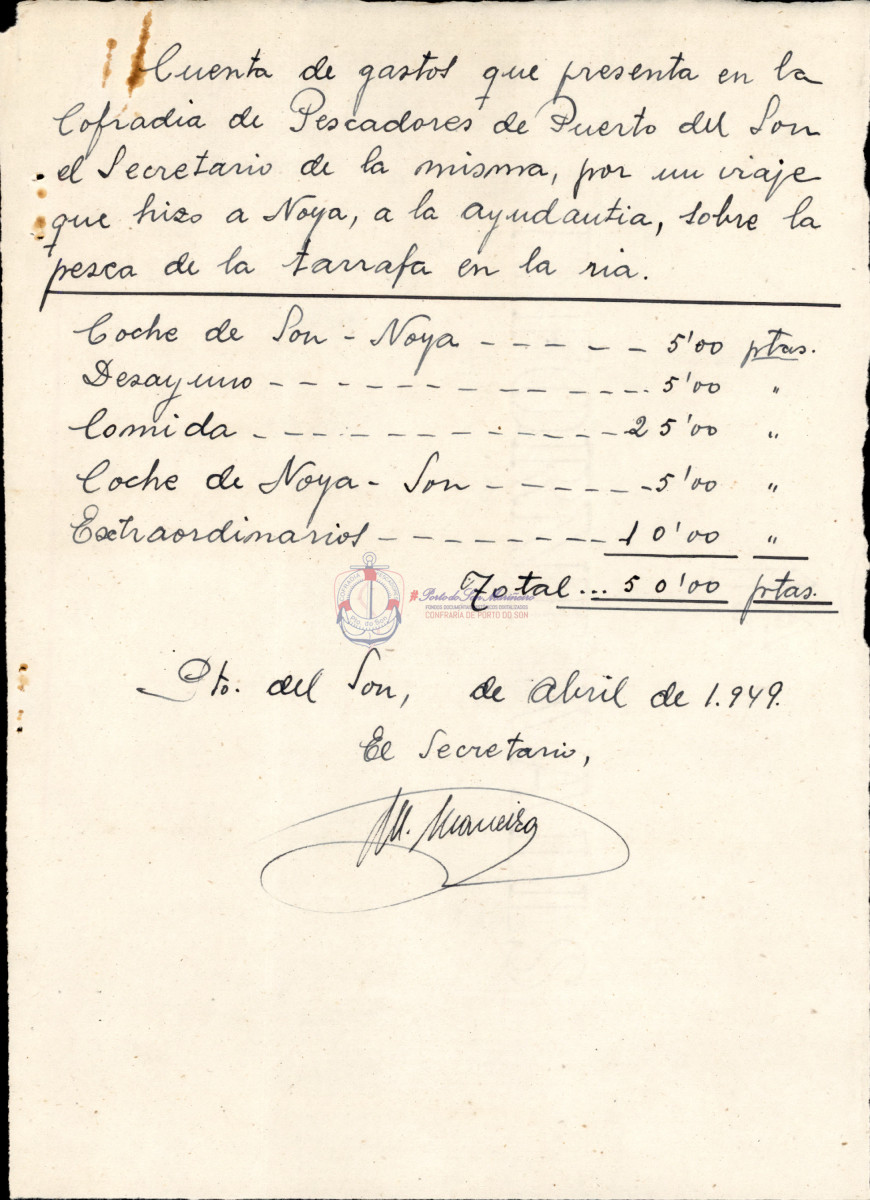 Cuenta de gastos que presenta en la
Cofradia de Pescadores de Puerto del Son
el Secretario de la misma, por un viaje
que hizo a Noya, a la ayudantia, sobre la
pesca de la tarrafa en la ria.
Coche de Son - Noya - - - - - - 5'00 ptas.
Desayuno - - - - - - - - - - - - - 5'00 "
Comida - - - - - - - - - - - - - 25'00 "
Coche de Noya - Son - - - - - - - 5'00 "
Extraordinarios - - - - - - - - - 10'00 "
Total ... 50'00 ptas.
COFRADIA PESCADORES
Pto. do Son
#Porto do Son Mariñeiro
CONFRARÍA DE PORTO DO SON
Pto. del Son, de abril de 1.949.
El Secretario,
M. Maneiro